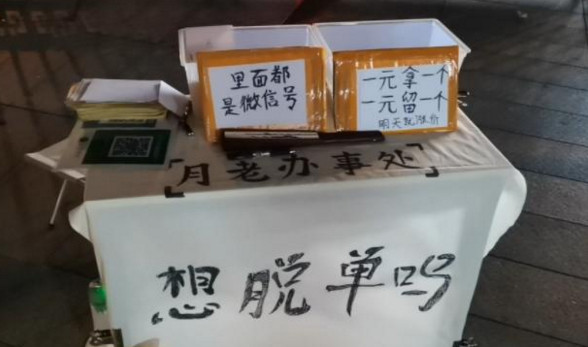 里面都
是微信号
一元拿一个
一元留一个
明天就涨价
「月老办事处」
想脱单吗